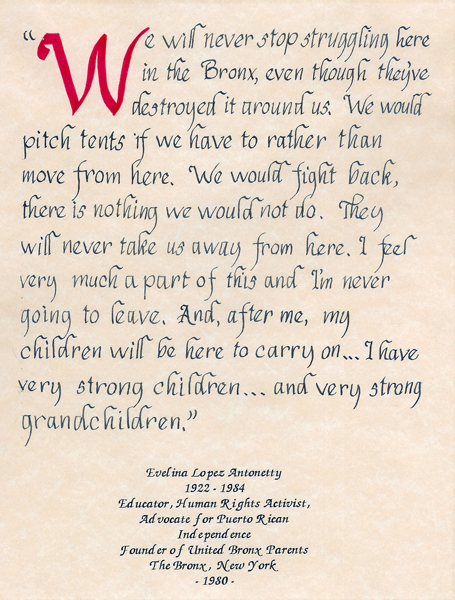 “We will never stop struggling here
in the Bronx, even though they've
destroyed it around us. We would
pitch tents if we have to rather than
move from here. We would fight back,
there is nothing we would not do. They
will never take us away from here. I feel
very much a part of this and I'm never
going to leave. And, after me, my
children will be here to carry on... I have
very strong children... and very strong
grandchildren.”
Evelina Lopez Antonetty
1922 - 1984
Educator, Human Rights Activist,
Advocate for Puerto Rican
Independence
Founder of United Bronx Parents
The Bronx, New York
- 1980 -